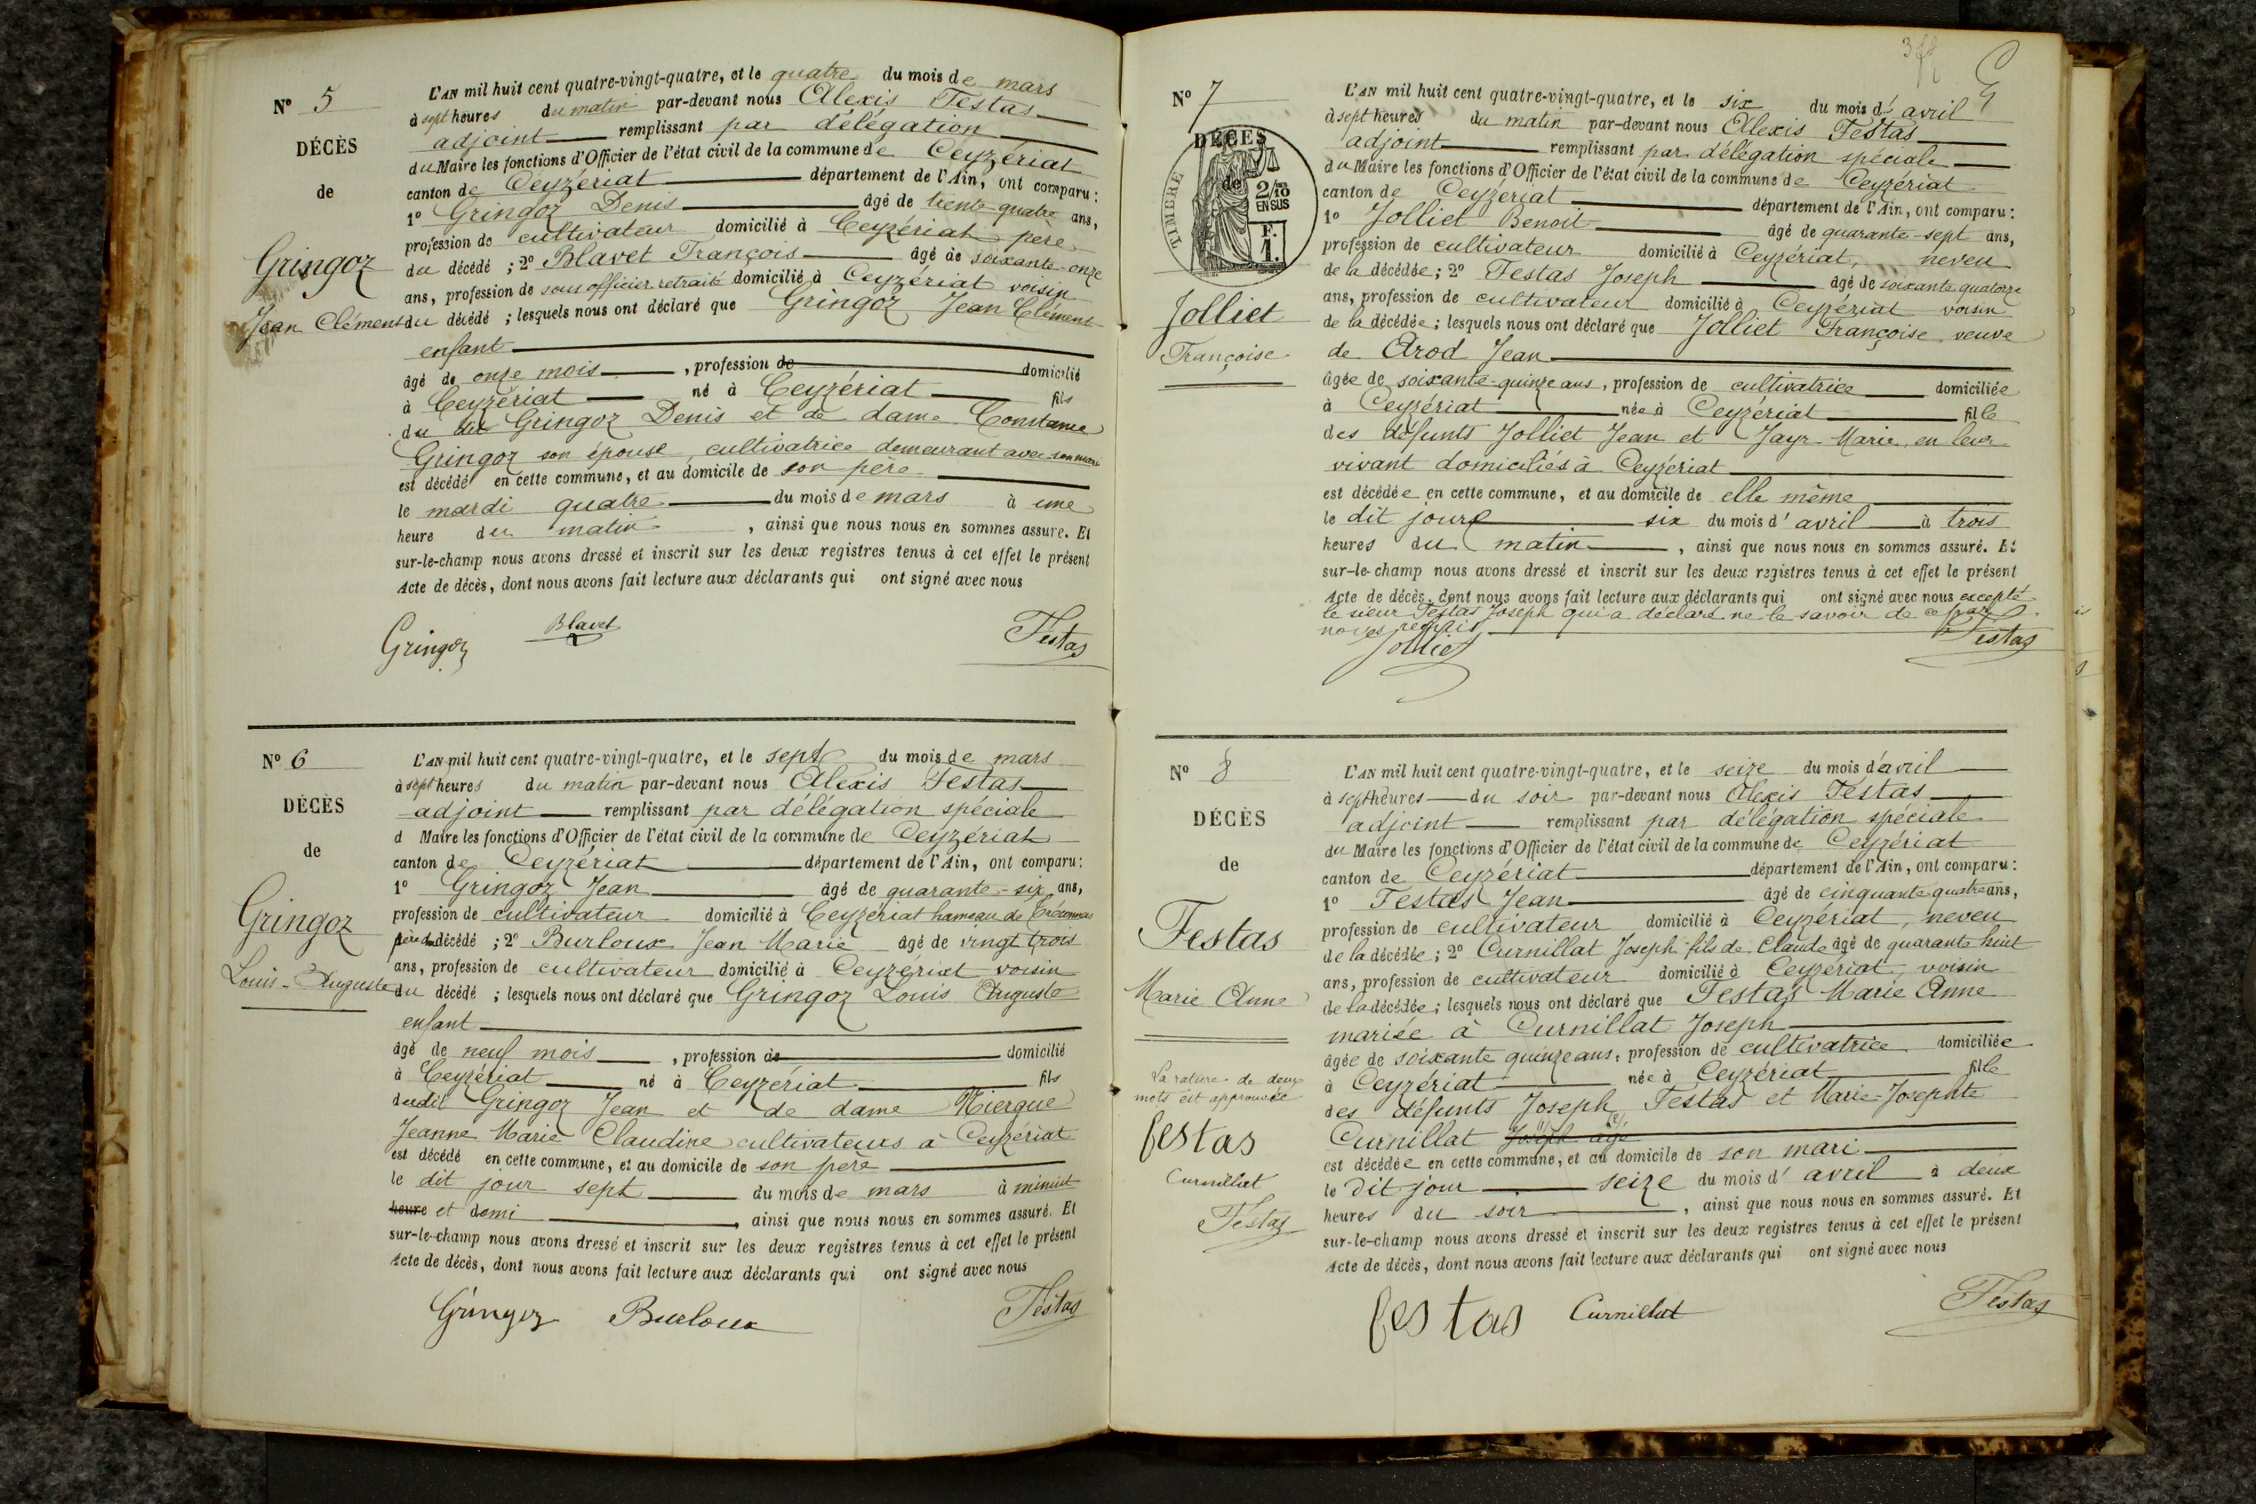 N° 5
DÉCÈS
de
Gringoz
Jean Clément
L'AN mil huit cent quatre-vingt-quatre, et le quatre du mois de mars
à sept heures du matin par-devant nous Alexis Festas
adjoint remplissant par délégation
du Maire les fonctions d'Officier de l'état civil de la commune de Ceyzériat
canton de Ceyzériat département de l'Ain, ont comparu :
1° Gringoz Denis âgé de trente-quatre ans,
profession de cultivateur domicilié à Ceyzériat père
du décédé ; 2° Blavet François âgé de soixante-onze
ans, profession de sous officier retraité domicilié à Ceyzériat voisin
du décédé ; lesquels nous ont déclaré que Gringoz Jean Clément
enfant
âgé de onze mois, profession de domicilié
à Ceyzériat né à Ceyzériat fils
du dit Gringoz Denis et de dame Constance
Gringoz son épouse, cultivatrice demeurant avec son mari
est décédé en cette commune, et au domicile de son père
le mardi quatre du mois de mars à une
heure du matin, ainsi que nous nous en sommes assuré. Et
sur-le-champ nous avons dressé et inscrit sur les deux registres tenus à cet effet le présent
Acte de décès, dont nous avons fait lecture aux déclarants qui ont signé avec nous
Gringoz Blavet Festas
N° 6
DÉCÈS
de
Gringoz
Louis-Auguste
L'AN mil huit cent quatre-vingt-quatre, et le sept du mois de mars
à sept heures du matin par-devant nous Alexis Festas
adjoint remplissant par délégation spéciale
d Maire les fonctions d'Officier de l'état civil de la commune de Ceyzériat
canton de Ceyzériat département de l'Ain, ont comparu :
1° Gringoz Jean âgé de quarante-six ans,
profession de cultivateur domicilié à Ceyzériat hameau de
père du décédé ; 2° Burloux Jean Marie âgé de vingt trois
ans, profession de cultivateur domicilié à Ceyzériat voisin
du décédé ; lesquels nous ont déclaré que Gringoz Louis Auguste
enfant
âgé de neuf mois, profession de domicilié
à Ceyzériat né à Ceyzériat fils
dudit Gringoz Jean et de dame Niergue
Jeanne Marie Claudine cultivateurs à Ceyzériat
est décédé en cette commune, et au domicile de son père
le dit jour sept du mois de mars à minuit
heure et demi, ainsi que nous nous en sommes assuré. Et
sur-le-champ nous avons dressé et inscrit sur les deux registres tenus à cet effet le présent
Acte de décès, dont nous avons fait lecture aux déclarants qui ont signé avec nous
Gringoz Burloux Festas
N° 7
DÉCÈS
de
TIMBRE
2/10 EN SUS
F. 1.
Jolliet
Françoise
L'AN mil huit cent quatre-vingt-quatre, et le six du mois d'avril
à sept heures du matin par-devant nous Alexis Festas
adjoint remplissant par délégation spéciale
du Maire les fonctions d'Officier de l'état civil de la commune de Ceyzériat
canton de Ceyzériat département de l'Ain, ont comparu :
1° Jolliet Benoit âgé de quarante-sept ans,
profession de cultivateur domicilié à Ceyzériat, neveu
de la décédée ; 2° Festas Joseph âgé de soixante quatorze
ans, profession de cultivateur domicilié à Ceyzériat voisin
de la décédée ; lesquels nous ont déclaré que Jolliet Françoise veuve
de Arod Jean
âgée de soixante-quinze ans, profession de cultivatrice domiciliée
à Ceyzériat née à Ceyzériat fille
des défunts Jolliet Jean et Jayr Marie en leur
vivant domiciliés à Ceyzériat
est décédée en cette commune, et au domicile de elle même
le dit jour six du mois d'avril à trois
heures du matin, ainsi que nous nous en sommes assuré. Et
sur-le-champ nous avons dressé et inscrit sur les deux registres tenus à cet effet le présent
Acte de décès, dont nous avons fait lecture aux déclarants qui ont signé avec nous excepté
le sieur Festas Joseph qui a déclaré ne le savoir de ce par
nous requis
Jolliet Festas
N° 8
DÉCÈS
de
Festas
Marie Anne
La rature de deux
mots est approuvée
festas
Curnillat
Festas
L'AN mil huit cent quatre-vingt-quatre, et le seize du mois d'avril
à sept heures du soir par-devant nous Alexis Festas
adjoint remplissant par délégation spéciale
du Maire les fonctions d'Officier de l'état civil de la commune de Ceyzériat
canton de Ceyzériat département de l'Ain, ont comparu :
1° Festas Jean âgé de cinquante quatre ans,
profession de cultivateur domicilié à Ceyzériat, neveu
de la décédée ; 2° Curnillat Joseph fils de Claude âgé de quarante huit
ans, profession de cultivateur domicilié à Ceyzériat, voisin
de la décédée ; lesquels nous ont déclaré que Festas Marie Anne
mariée à Curnillat Joseph
âgée de soixante quinze ans, profession de cultivatrice domiciliée
à Ceyzériat née à Ceyzériat fille
des défunts Joseph Festas et Marie-Josephte
Curnillat Joseph âgé
est décédée en cette commune, et au domicile de son mari
le dit jour seize du mois d'avril à deux
heures du soir, ainsi que nous nous en sommes assuré. Et
sur-le-champ nous avons dressé et inscrit sur les deux registres tenus à cet effet le présent
Acte de décès, dont nous avons fait lecture aux déclarants qui ont signé avec nous
festas Curnillat Festas